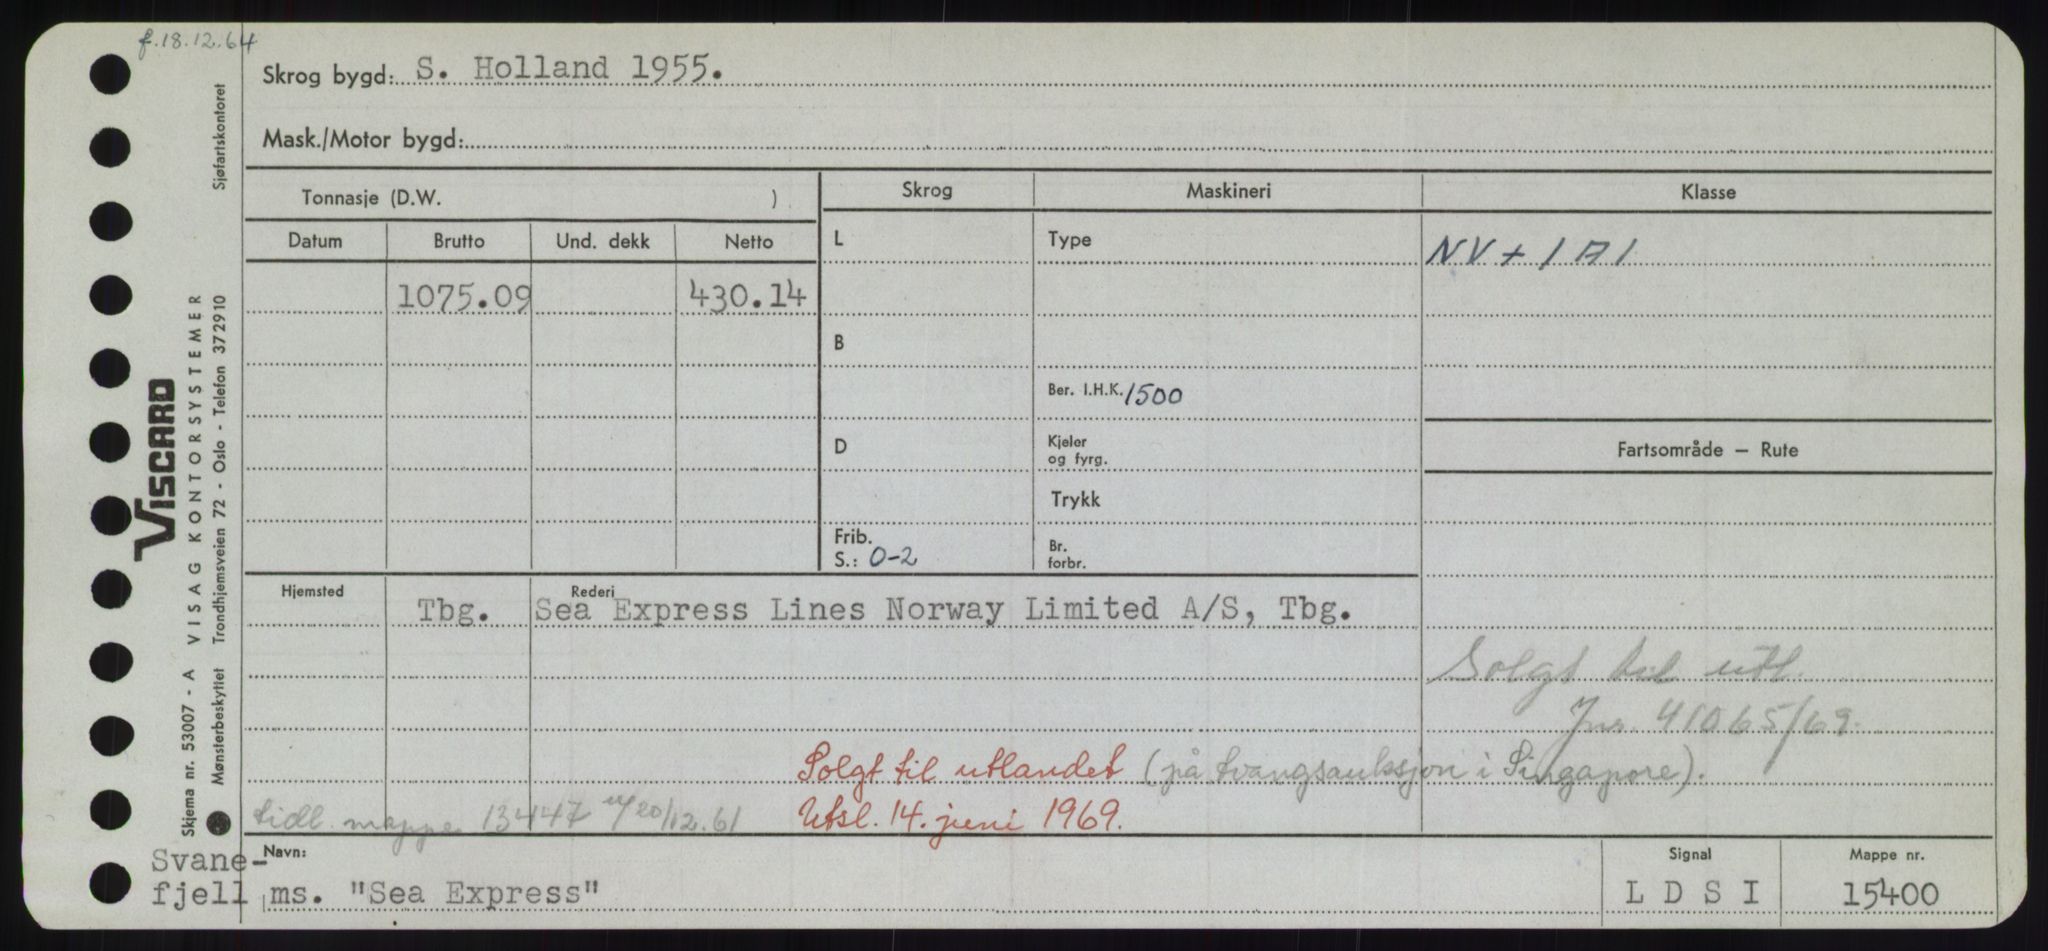 f. 18.12.64
Skrog bygd: S. Holland 1955.
Mask./Motor bygd:
Tonnasje (D.W. )
Skrog Maskineri Klasse
Datum Brutto Und. dekk Netto
L Type NV + 1 A 1
1075.09 430.14
B
Ber. I.H.K. 1500
D Kjeler og fyrg.
Fartsområde — Rute
Trykk
Frib.
S.: 0-2
Br. forbr.
Hjemsted Rederi
Tbg. Sea Express Lines Norway Limited A/S, Tbg.
Solgt til utl.
Jnr. 41065/69.
Solgt til utlandet (på tvangsauksjon i Singapore).
tidl. mappe 13447 20/12.61 Utsl. 14. juni 1969.
Svane-
fjell
Navn:
ms. "Sea Express"
Signal
L D S I
Mappe nr.
15400
Skjema nr. 53007 - A VISAG KONTORSYSTEMER
Mønsterbeskyttet Trondhjemsveien 72 - Oslo - Telefon 372910 Sjøfartskontoret
VISCARD